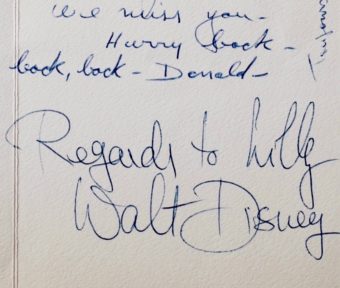 We miss you -
Hurry back -
back, back - Donald -
Regards to Lilly
Walt Disney